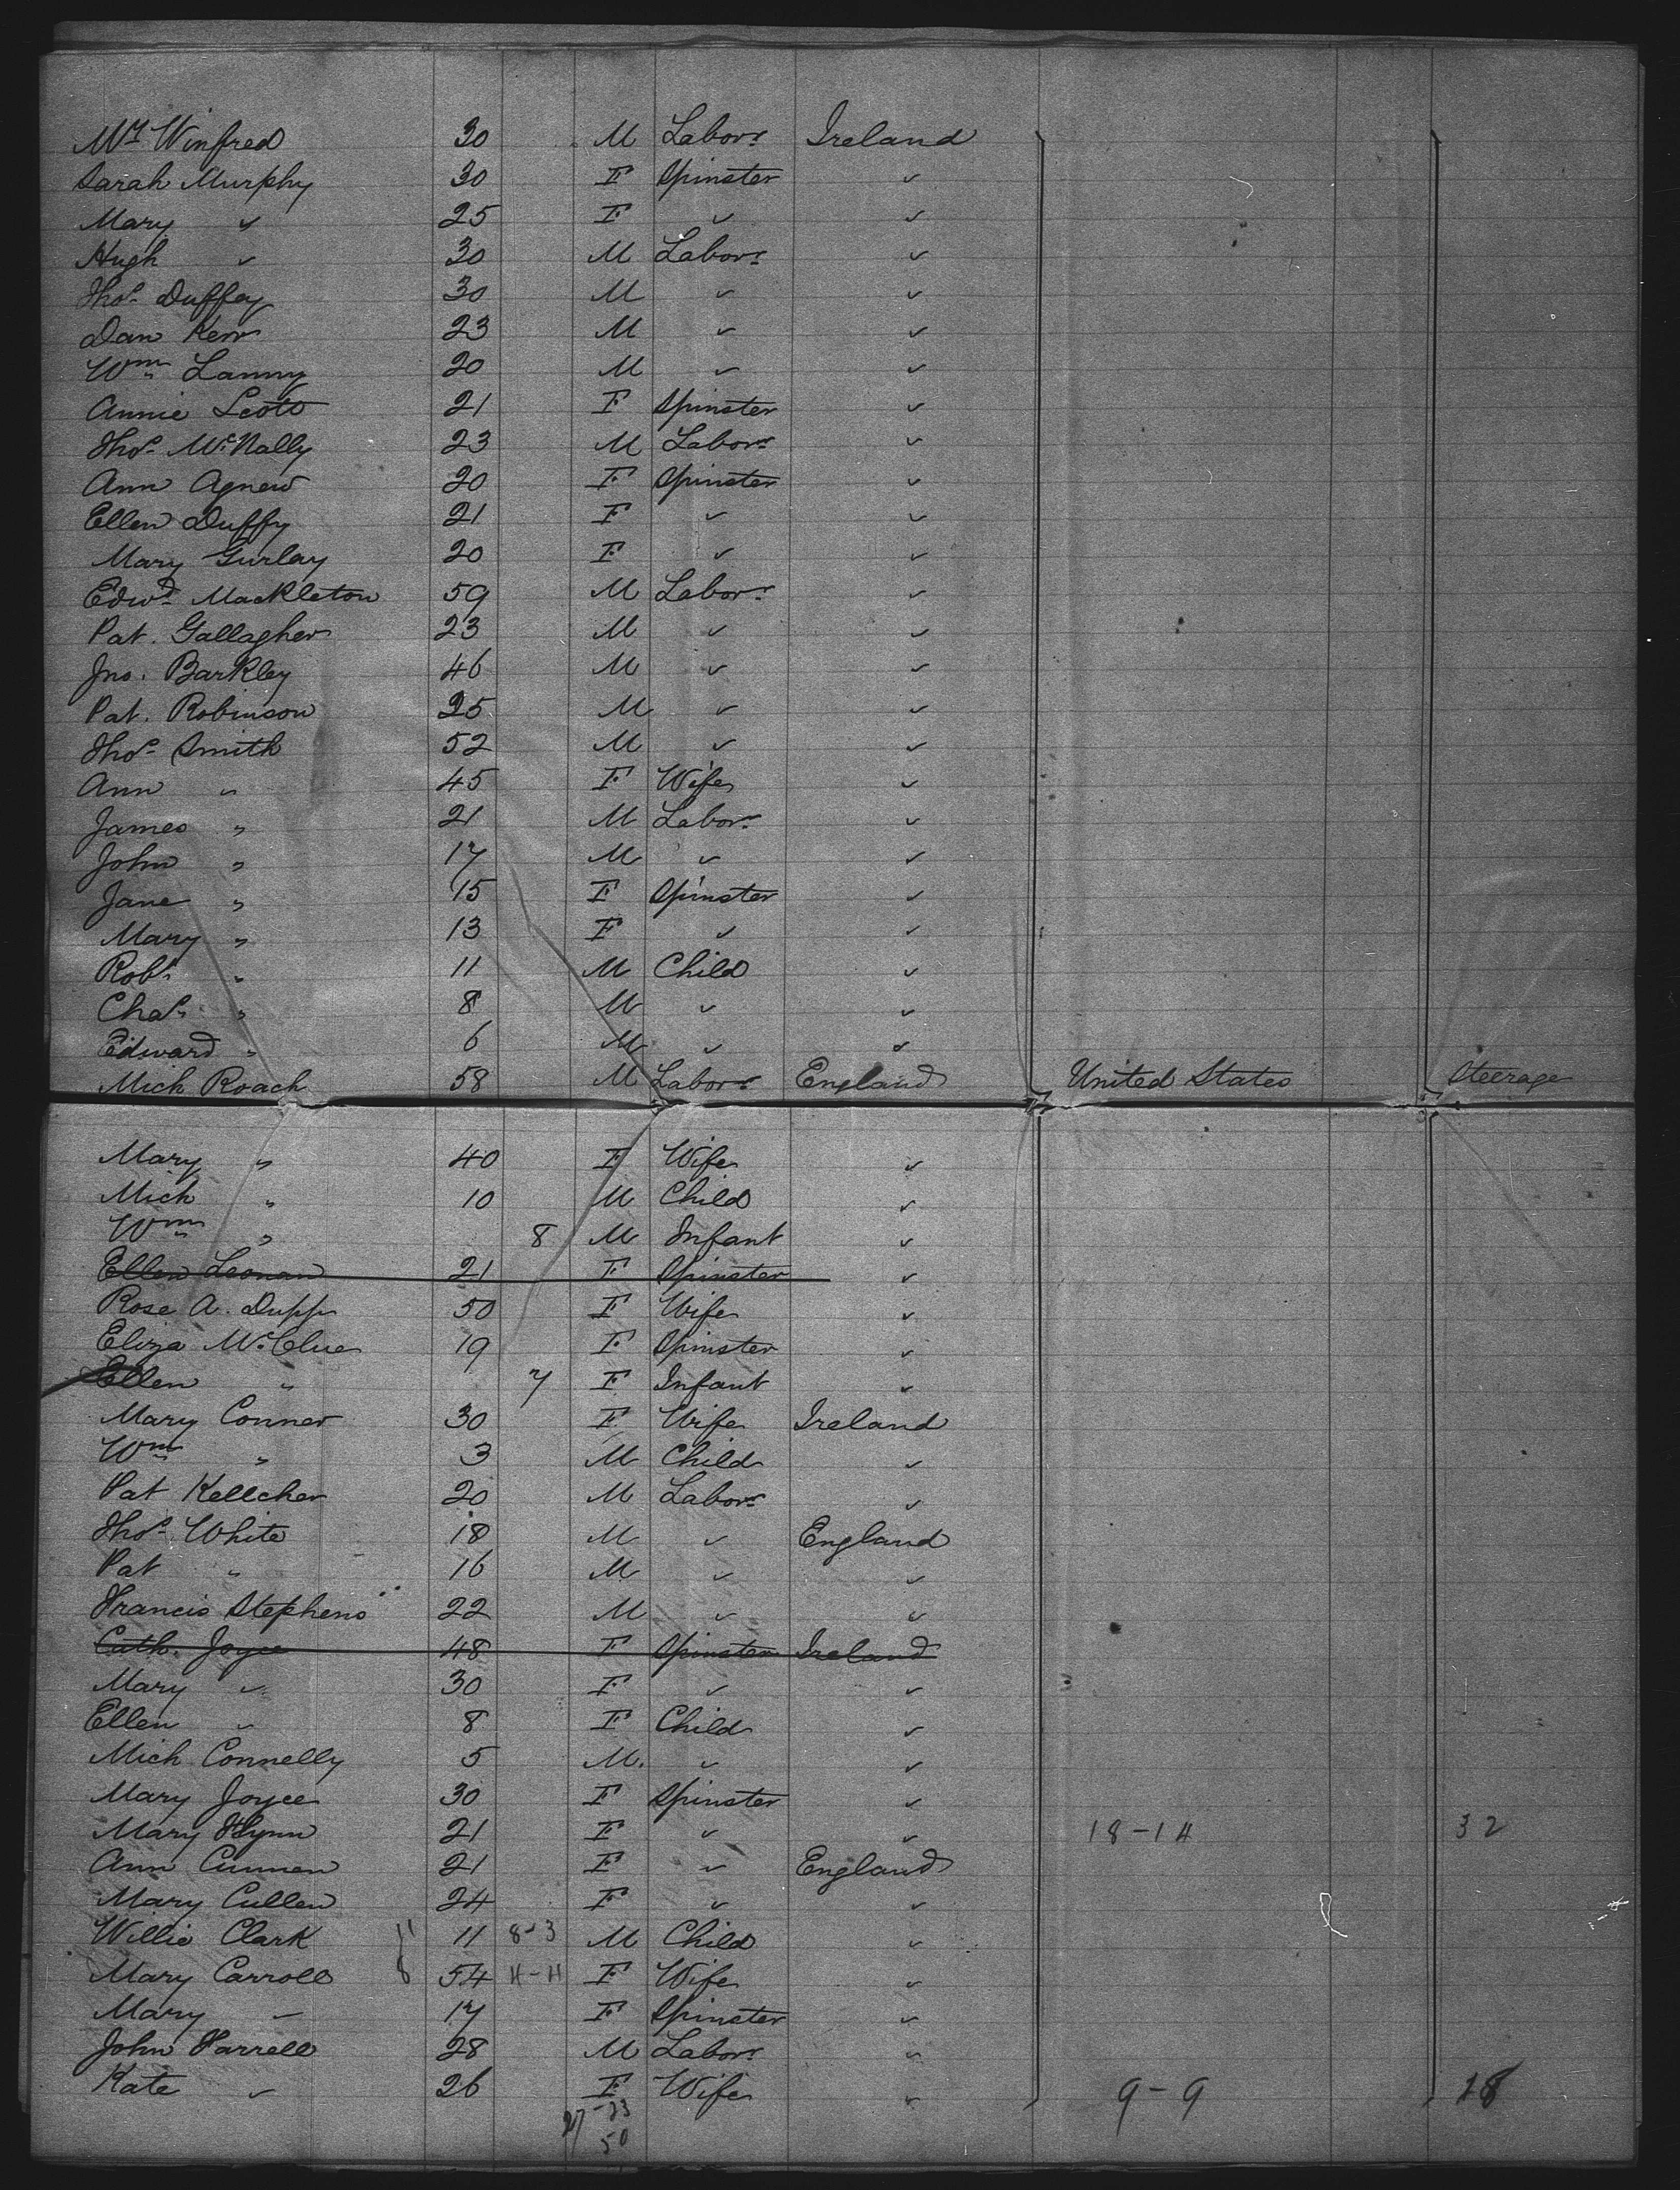 Wm Winfred 30 M Labor. Ireland
Sarah Murphy 30 F Spinster "
Mary " 25 F " "
Hugh " 30 M Labor. "
Thos. Duffey 30 M " "
Dan Kerr 23 M " "
Wm Lanny 20 M " "
Annie Scott 21 F Spinster "
Thos. McNally 23 M Labor. "
Ann Agnew 20 F Spinster "
Ellen Duffy 21 F " "
Mary Gurlay 20 F " "
Edwd. Mackleton 59 M Labor. "
Pat. Gallagher 23 M " "
Jno. Barkley 46 M " "
Pat. Robinson 25 M " "
Thos. Smith 52 M " "
Ann " 45 F Wife "
James " 21 M Labor. "
John " 17 M " "
Jane " 15 F Spinster "
Mary " 13 F " "
Robt. " 11 M Child "
Chas. " 8 M " "
Edward " 6 M " "
Mich Roach 58 M Labor. England United States Steerage
Mary " 40 F Wife "
Mich " 10 M Child "
Wm " 8 M Infant "
Ellen Leonan 21 F Spinster "
Rose A. Dupp 50 F Wife "
Eliza McClue 19 F Spinster "
Ellen " 7 F Infant "
Mary Conner 30 F Wife Ireland
Wm " 3 M Child "
Pat Kellcher 20 M Labor. "
Thos. White 18 M " England
Pat " 16 M " "
Francis Stephens 22 M " "
Cath. Joyce 48 F Spinster Ireland
Mary " 30 F " "
Ellen " 8 F Child "
Mich Connelly 5 M. " "
Mary Joyce 30 F Spinster "
Mary Flynn 21 F " " 18-14 32
Ann Cunnen 21 F " England
Mary Cullen 24 F " "
Willie Clark 11 11 8-3 M Child "
Mary Carroll 8 54 4-4 F Wife "
Mary " 17 F Spinster "
John Farrell 28 M Labor. "
Kate " 26 F Wife " 9-9 18
27-23
50